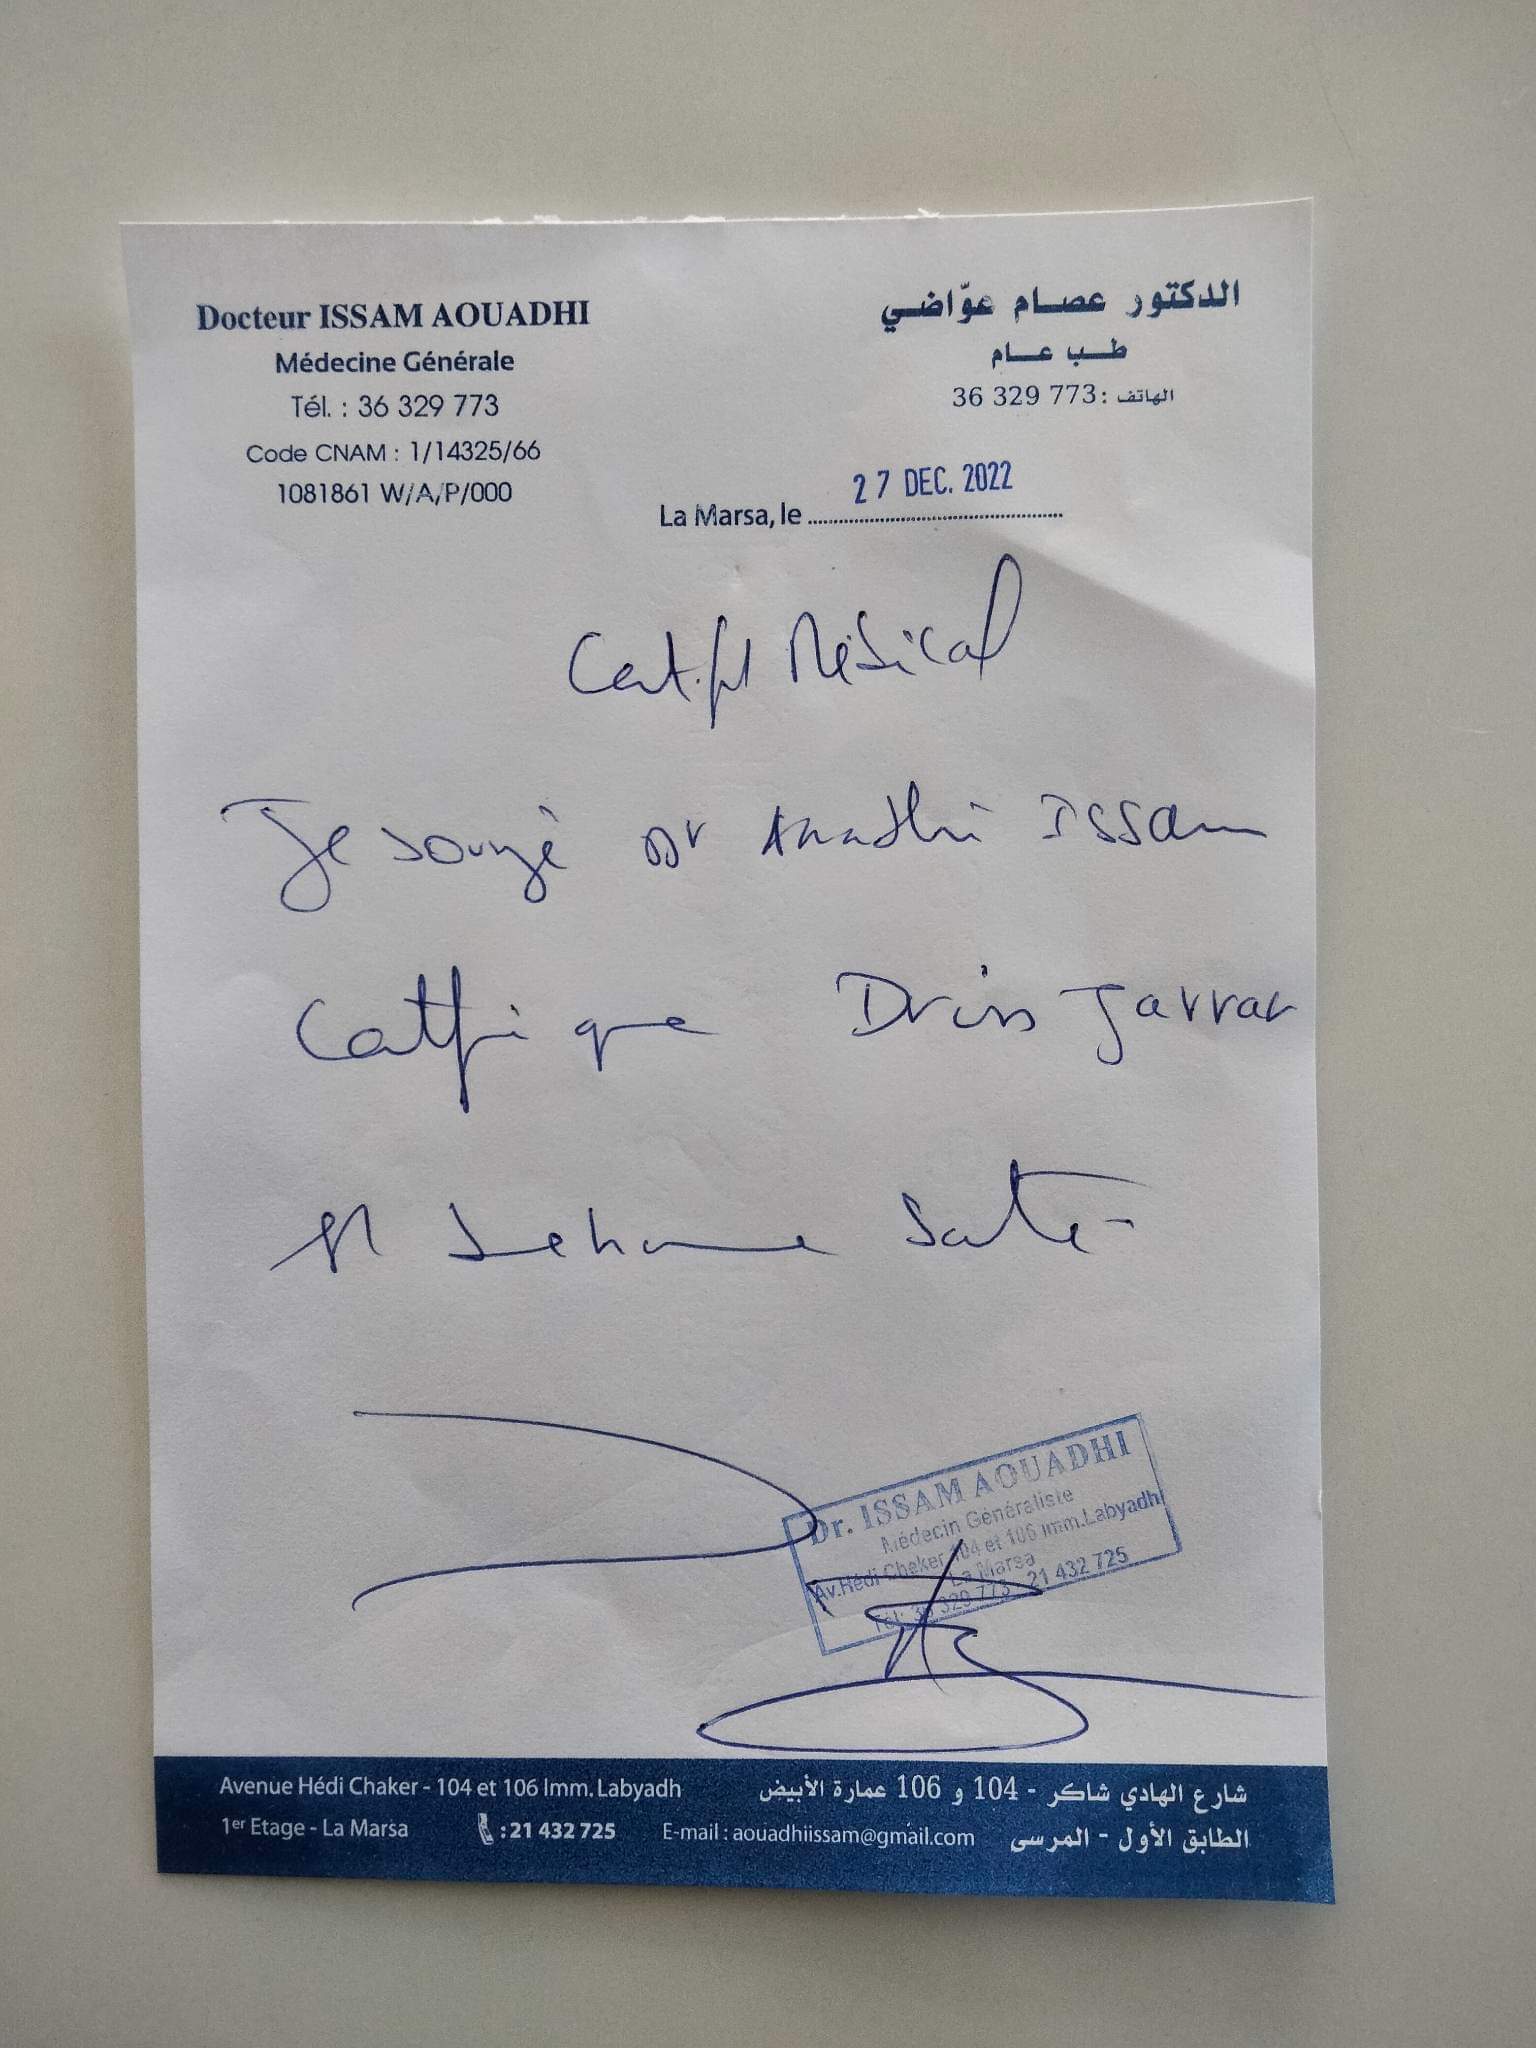 Docteur ISSAM AOUADHI
Médecine Générale
Tél. : 36 329 773
Code CNAM : 1/14325/66
1081861 W/A/P/000
الدكتور عصام عوّاضي
طب عام
الهاتف : 36 329 773
La Marsa, le 27 DEC. 2022
Certificat Médical
Je soussigné Dr Aouadhi Issam
Certifie que Driss Jarrar
est bonne santé
Dr. ISSAM AOUADHI
Médecin Généraliste
Av.Hédi Chaker 104 et 106 Imm.Labyadh
La Marsa
Tél: 36 329 773 - 21 432 725
Avenue Hédi Chaker - 104 et 106 Imm. Labyadh
1er Etage - La Marsa : 21 432 725 E-mail : aouadhiissam@gmail.com
شارع الهادي شاكر - 104 و 106 عمارة الأبيض
الطابق الأول - المرسى